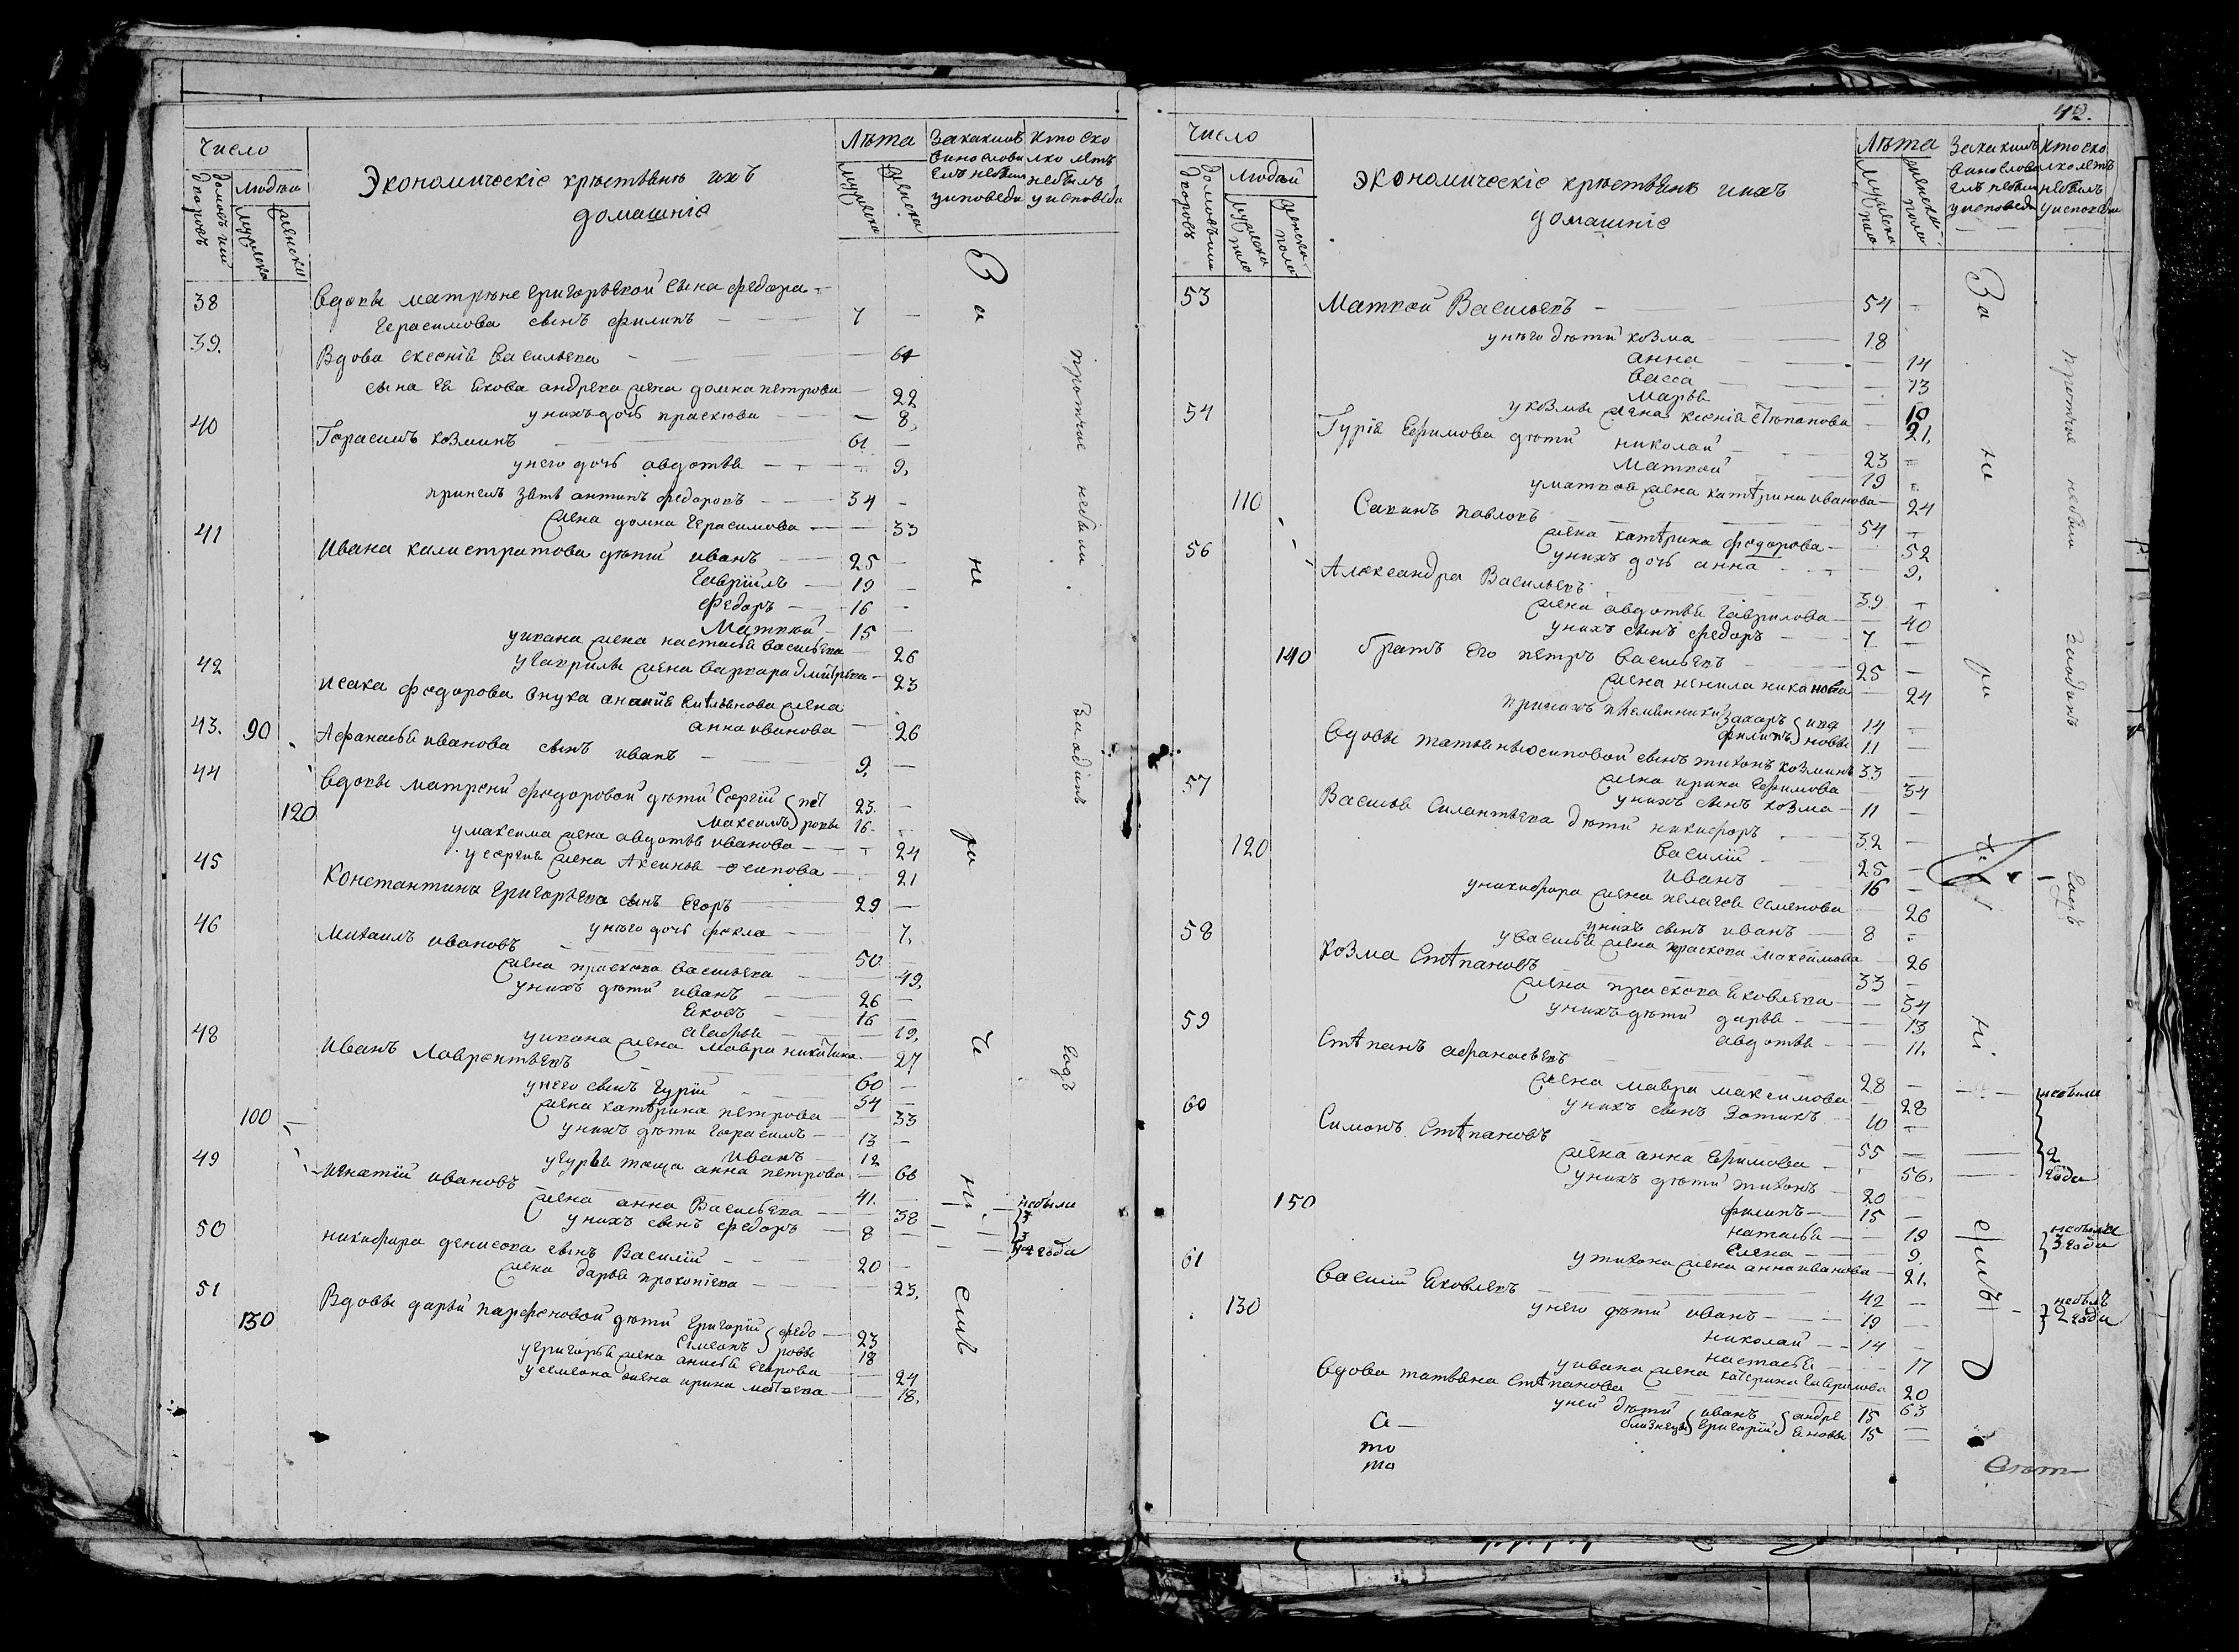 Число
домовъ или дворовъ
Людей
мужеска
женска
Экономическіе крестьяне ихъ
домашніе
Лѣта
мужеска
женска
За какимъ
винослови
емъ небыли
уисповеди
Кто ско
лко летъ
небылъ
уисповеди
38 вдовы матрене григорьевой сына федора
Герасимова сынъ филипъ — 7 —
39. Вдова ксенія васильева — 64
сына ея якова андреева жена домна петрова — 22
унихъ дочь прасковя — 8.
40 Гарасимъ козминъ — 61 —
унего дочь авдотья — 9.
принелъ зять антипъ федоровъ — 34 —
жена домна герасимова — 33
41 Ивана калистратова дѣти иванъ — 25 —
гаврiилъ — 19 —
федоръ — 16 —
Матвей — 15 —
уивана жена настасья васильева — 26
угаврилы жена варвара дмитрева — 23
42 исака федорова внука ананiя емельянова жена
анна иванова — 26
43. 90 Афанасья иванова сынъ иванъ — 9. —
44 вдовы матрени федоровой дѣти Сергiй пет 23. —
120 Максимъ ровы 16. —
умаксима жена авдотья иванова — 24
усергея жена Аксинья осипова — 21
45 Константина григорьева сынъ егоръ — 29 —
унего дочь фекла — 7.
46 Михаилъ ивановъ — 50 —
жена праскова васильева — 49.
унихъ дѣти иванъ — 26 —
яковъ — 16 —
агафья — 19.
уивана жена мавра никитина — 27
48 Иванъ Лаврентьевъ — 60 —
унего сынъ гурiй — 34 —
жена катерина петрова — 33
100 унихъ дѣти гарасимъ — 13 —
иванъ — 12
угурья теща анна петрова — 66
49 игнатiй ивановъ — 41. —
жена анна васильева — 38 — небыли
унихъ сынъ федоръ — 8 — 3 года
50 никифора денисова сынъ Василiй — 20 —
жена дарья прокопiева — 23.
51 Вдовы дарьи парфеновой дѣти григорiй федо 23
130 Симеонъ ровы 18
угригорья жена анисья егорова — 24
усемиона жена ирина матвева — 18.
За не ра че нi емъ
прочтие небыли
Заодинъ
годъ
42.
Число
домовъ или дворовъ
Людей
мужеска пола
женска пола
экономическіе крестьяне иихъ
домашніе
Лѣта
мужеска пола
женской пола
За какимъ
винослови
емъ небыли
уисповеди
Кто ско
лко летъ
небылъ
уисповеди
53 Матвей Васильевъ — 54 —
унего дѣти козма — 18
анна — 14
васса — 13
марья — 10
укозмы жена ксенія степанова — 21.
54 Гурія Ефимова дѣти николай — 23 —
Матвей — 19 —
уматвея жена катерина иванова — 24
110 Савинъ павловъ — 54 —
жена катерина федорова — 52
унихъ дочь анна — 9.
56 Александра Васильевъ — 39 —
жена авдотья гаврилова — 40
унихъ сынъ федоръ — 7 —
140 братъ его петръ васильевъ — 25 —
жена ненила никонова — 24
приихъ племенники захаръ ива 14 —
филипъ новы 11 —
вдовы татьяны осиповой сынъ тихонъ козминъ 33 —
жена ирина Ефимова — 34
унихъ сынъ козма — 11 —
57 Василья силантьева дѣти никифоръ — 32 —
120 василiй — 25 —
иванъ — 16 —
уникифора жена пелагея семенова — 26
унихъ сынъ иванъ — 8 —
увасилья жена праскева максимова — 26
58 козма Степановъ — 33 —
жена праскова яковлева — 34
унихъ дѣти дарья — 13
авдотья — 11.
59 Степанъ афанасьевъ — 28 — небыли
жена мавра максимова — 28
унихъ сынъ Зотикъ — 10 —
60 Симонъ Степановъ — 55 — 2
жена анна Ефимова — 56. года
унихъ дѣти тихонъ — 20 —
150 филипъ — 15 —
наталья — 19 небыли
Елена — 9. 3 года
утихона жена анна иванова — 21.
61 василiй яковлевъ — 42 — небылъ
130 унего дѣти иванъ — 19 — 2 года
николай — 14 —
настасья — 17
уивана жена катерина гаврилова 20
вдова татьяна Степанова — 63
уней дѣти близнецы иванъ андре 15 —
григорiй яновы 15 —
За не ра че нi емъ
протчие небыли
Заодинъ
годъ
а
то
та